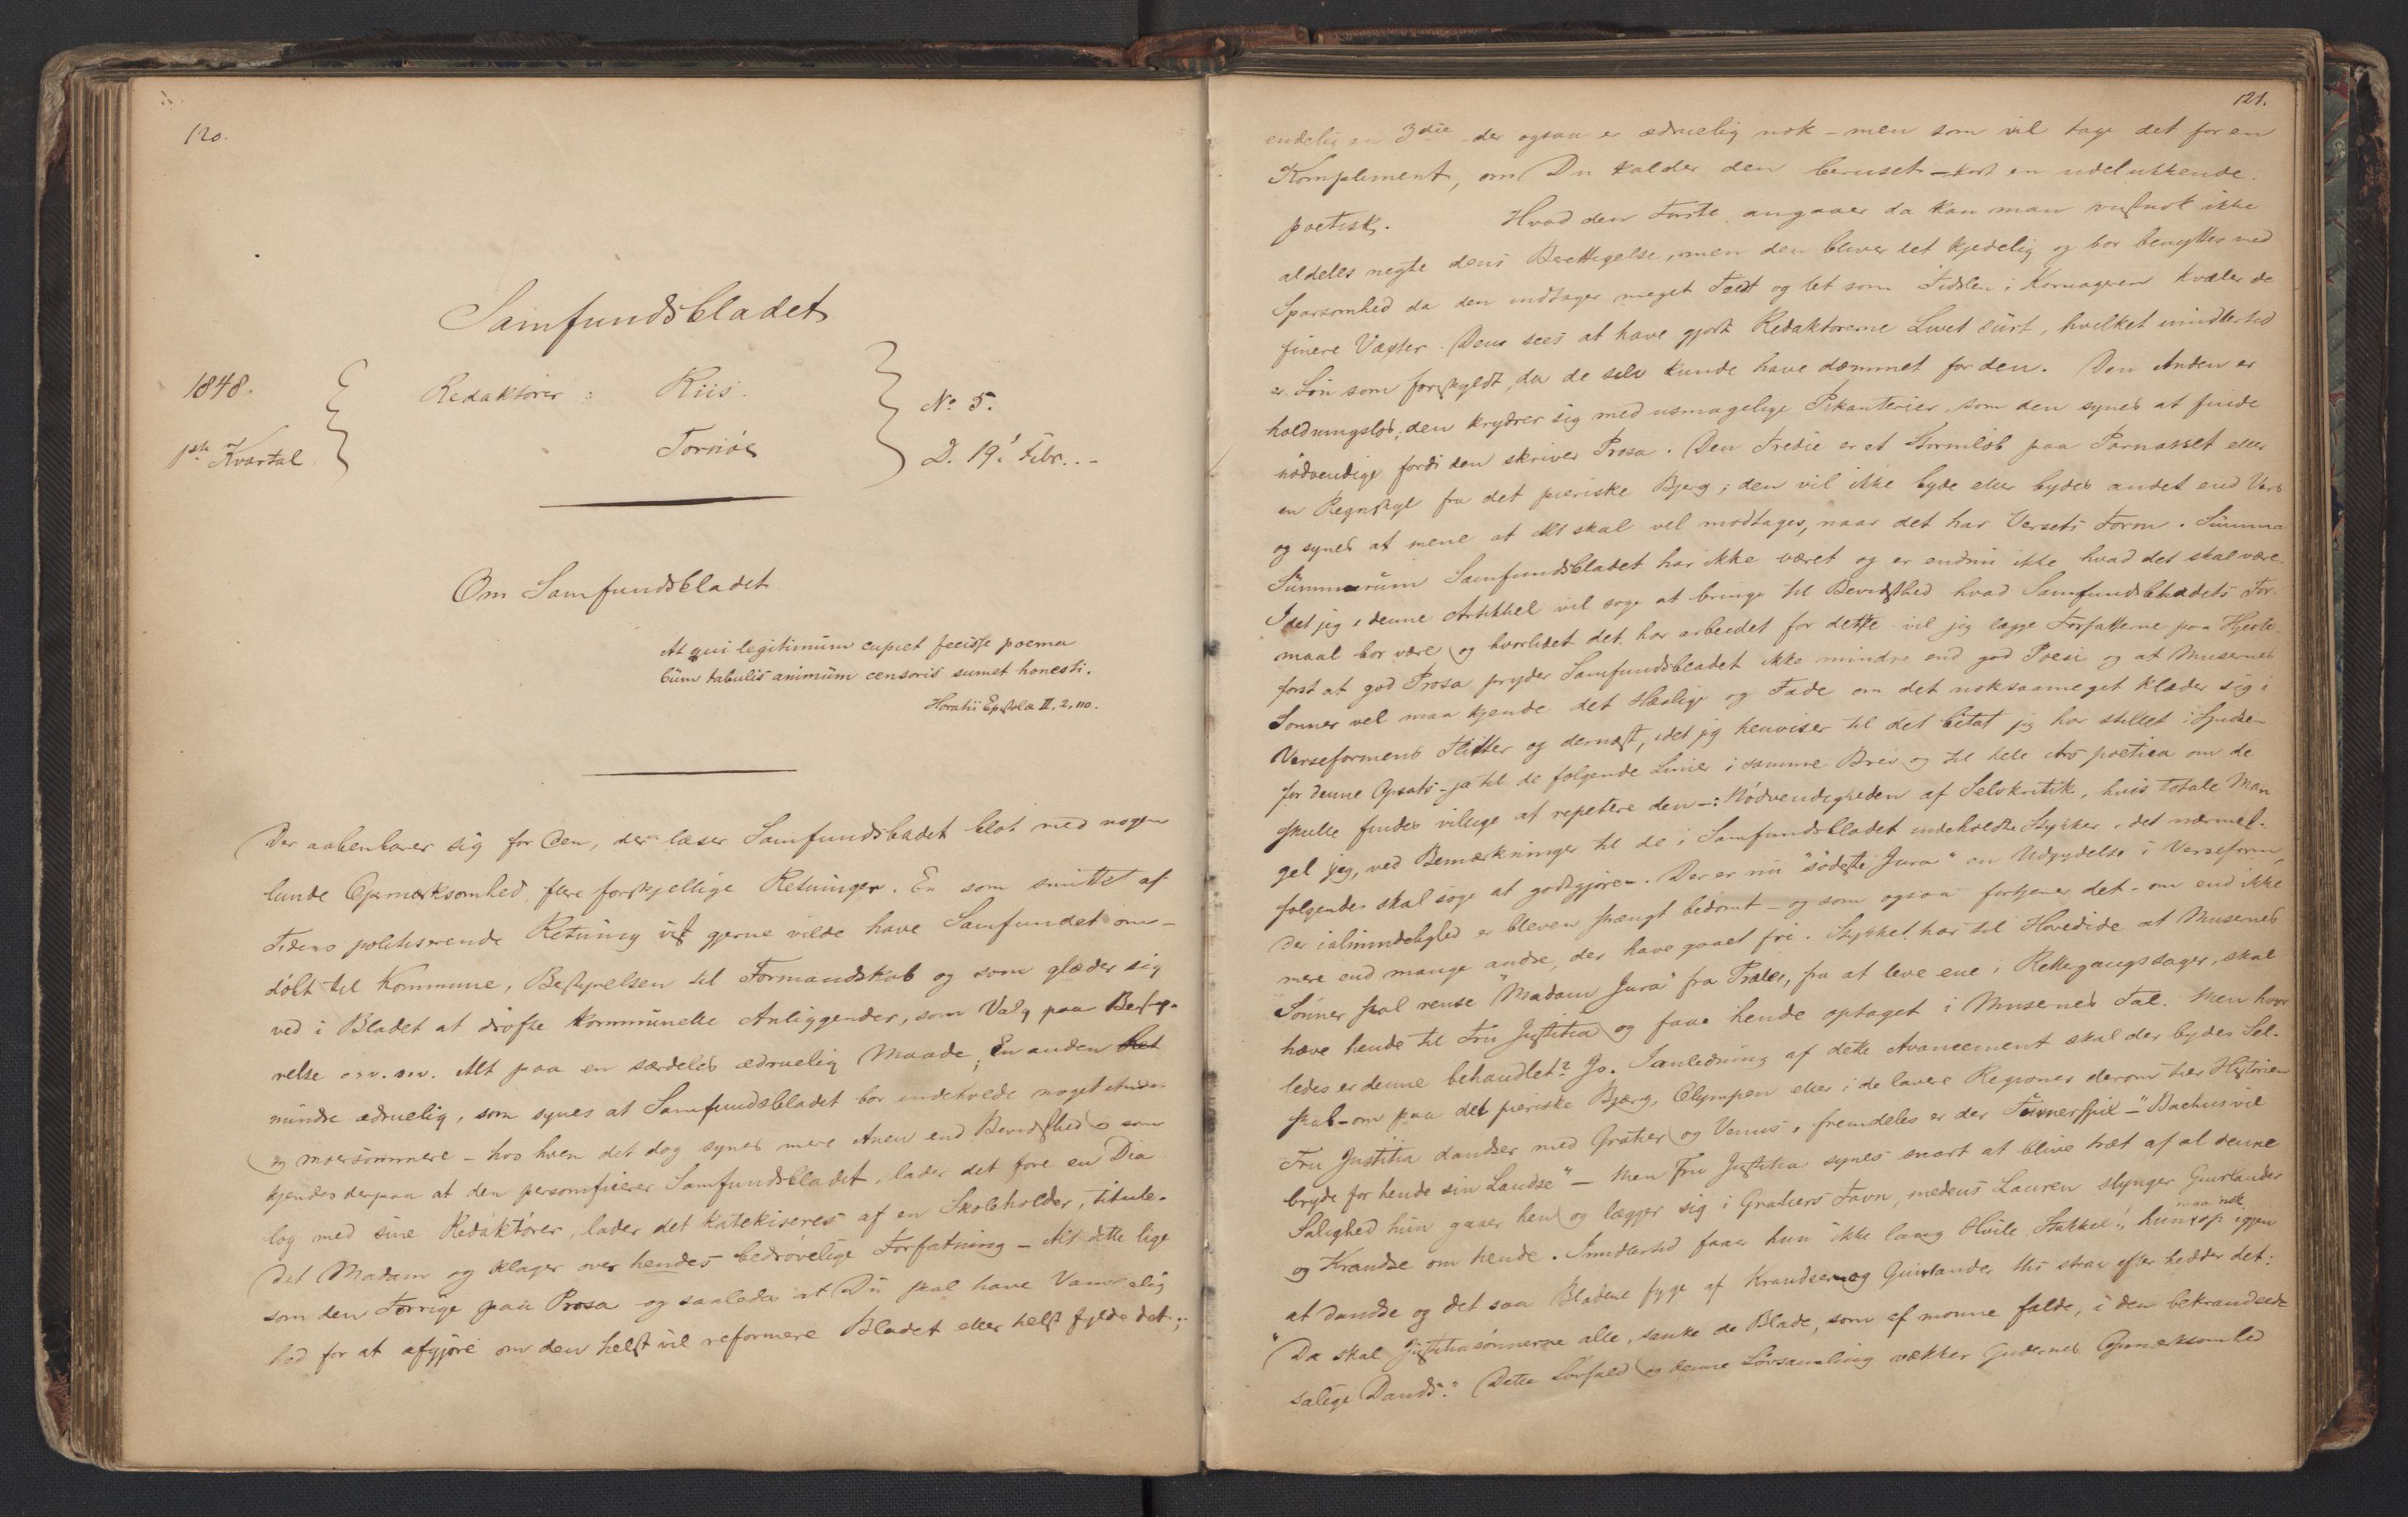 120.
Samfundsbladet
1848.
1ste Kvartal
Redaktører: Riis.
Tornöe
No 5.
D. 19' Febr..-
Om Samfundsbladet
At qui legitimum cupiet fecisse poema
Cum tabulis animum censoris sumet honesti.
Horatii Epistola II, 2, 110.
Der aabenbarer sig for Den, der læser Samfundsbadet blot med nogen
lunde Opmærksomhed, flere forskjellige Retninger. En som smittet af
Tidens politiserende Retning vist gjerne vilde have Samfundet om-
döbt til Kommune, Bestyrelsen til Formandskab og som glæder sig
ved i Bladet at dröfte kommunelle Anliggender, som Valg paa Besty-
relse osv. osv. Alt paa en særdeles ædruelig Maade; En anden
mindre ædruelig, som synes at Samfundsbladet bor indeholde noget Andet
og morsommere - hos hvem det dog synes mere Anen end Bevidsthed og som
kjendes derpaa at den personificerer Samfundsbladet, lader det fore en Dia
log med sine Redaktörer, lader det katekiseres af en Skoleholder, titule-
Det Madam og klager over hendes bedrövelige Forfatning - Alt dette lige
som den Forrige paa Prosa - og saaledes at Du skal have Vanskelig
hed for at afgjöre om den helst vil reformere Bladet eller helst fylde det;
121.
endelig en 3die der ogsaa er ædruelig nok - men som vil tage det for en
Kompliment, om Du kalder den beruset - kort en udelukkende
poetisk. Hvad den Förste angaaer da kan man vistnok ikke
aldeles negte dens Berettigelse, men den bliver let kjedelig og bor benyttes med
Sparsomhed da den indtager meget Feldt og let som Tidslen i Kornageren kvæler de
finere Væxter. Den sees at have gjort Redaktörerne Livet surt, hvilket imidlertid
er Lön som forskyldt, da de selv kunde have dæmmet for den. Den Anden er
holdningslös, den krydrer sig med usmagelige Pikanterier, som den synes at finde
nödvendige fordi den skriver Prosa. Den Tredie er et Stormlöb paa Parnasset eller
en Regnskyl fra det pieriske Bjerg; den vil ikke byde eller bydes andet end Vers
og synes at mene at Alt skal vel modtages, naar det har Versets Form. Summa
Summarum Samfundsbladet har ikke været og er endnu ikke hvad det skal være.
Idet jeg i denne Artikkel vil söge at bringe til Bevidsthed hvad Samfundsbladets For-
maal bor være og hvorlidet det har arbeidet for dette vil jeg lægge Forfatterne paa Hjerte
forst at god Prosa pryder Samfundsbladet ikke mindre end god Poesi og at Musernes
Sonner vel maa kjende det Hæslige og Fade om det noksaameget klæder sig i
Verseformens Flitter og dernæst, idet jeg henviser til det Citat jeg har stillet i Spidsen
for denne Opsats - ja til de folgende Linier i samme Brev og til hele Ars poetica om de
skulle findes villige at repetere den -: Nödvendigheden af Selvkritik, hvis totale Man
gel jeg, ved Bemærkninger til de i Samfundsbladet indeholdte Stykker, i det nærmest
folgende skal söge at godtgjöre. Der er nu "södeste Jura" en Udgydelse i Verseform,
der i almindelighed er bleven strængt bedömt - og som ogsaa fortjener det - om end ikke
mere end mange andre, der have gaaet fri. Stykket har til Hovedide at Musernes
Sönner skal rense "Madam Jura" fra Pralen, fra at leve ene i Rettegangssager, skal
hæve hende til Fru Justitia og faae hende optaget i Musernes Tal. Men hvor
ledes er denne behandlet? Jo. I anledning af dette Avancement skal der bydes Sel-
skab - om paa det pieriske Bjerg, Olympen eller i de lavere Regioner derom tier Historien
Fru Justitia dandser med Gratier og Venus, fremdeles er der Turnerspil - "Bachus vil
bryde for hende sin Landse" - Men Fru Justitia synes snart at blive træt af al denne
Salighed hun gaaer hen og lægger sig i Gratiers Favn, medens Lauren slynger Guirlander
og Krandse om hende. Imidlertid faaer hun ikke lang Hvile Stakkel!, hun maa nok op igjen
at dandse og det saa Bladene fyge af Krandsene og Guirlander thi strax efter hedder det:
"Da skal Justitiasönnerne alle, sanke de Blade, som af monne falde, i den bekrandsede
salige Dands." Dette Lövfald og denne Lövsamling vækker Gudernes Opmærksomhed